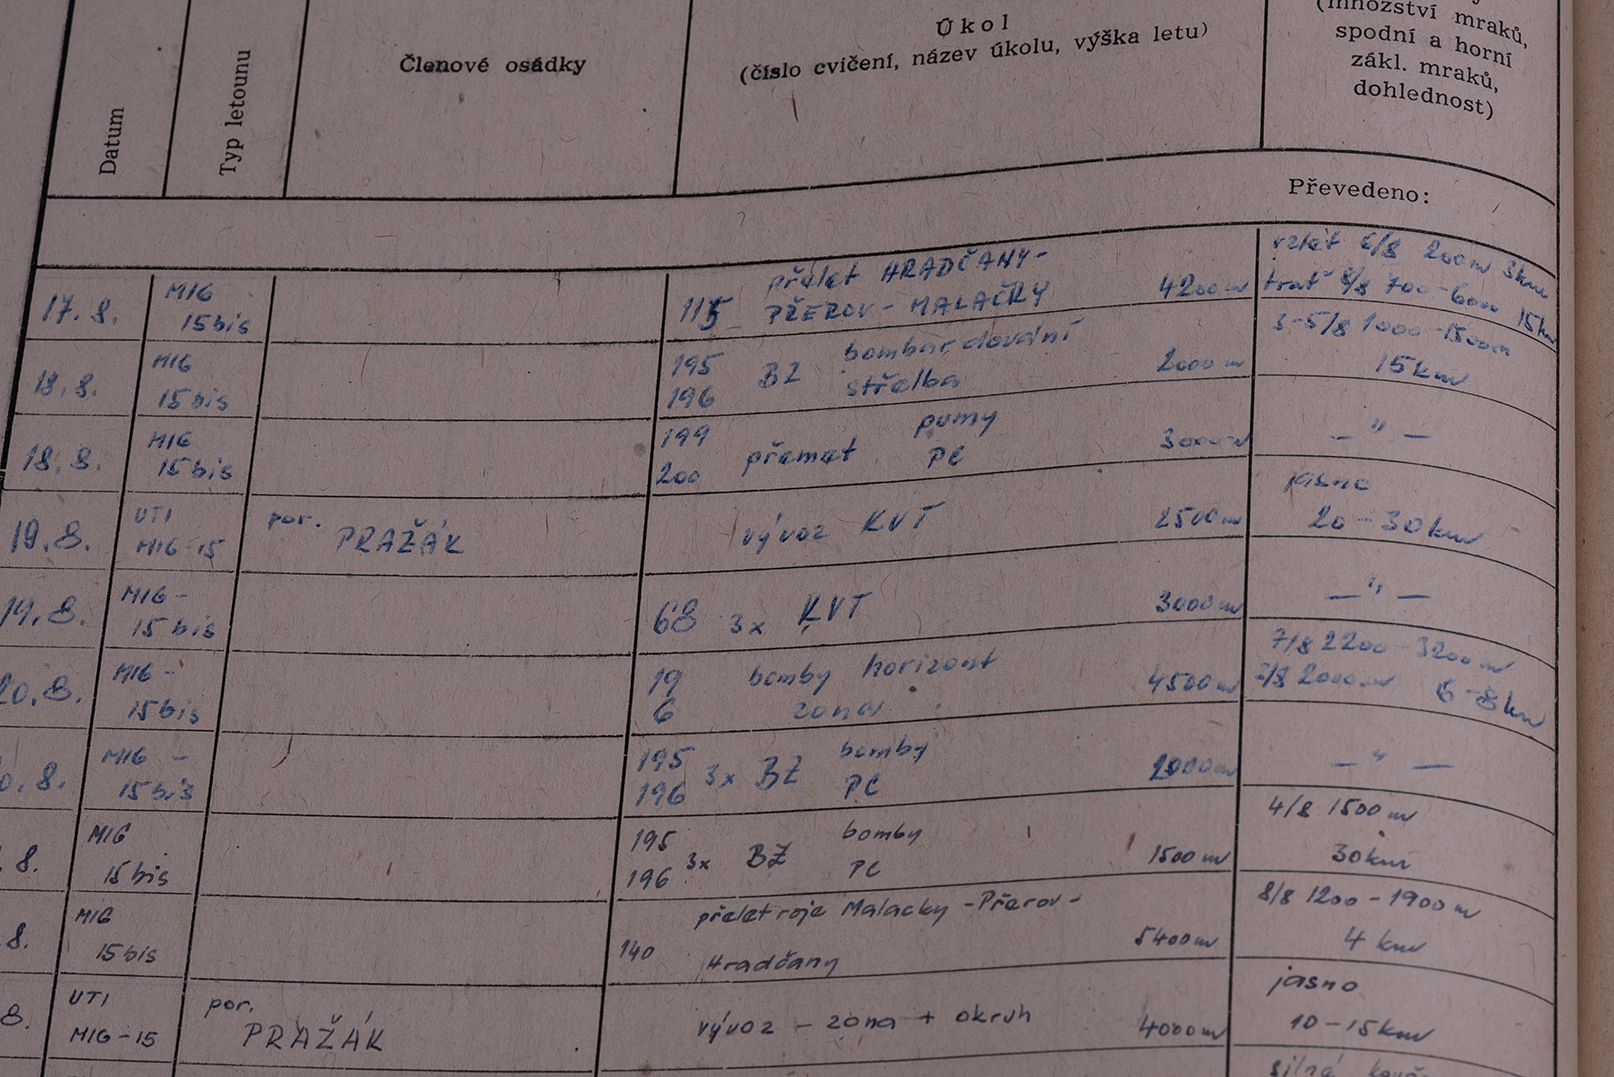 Datum
Typ letounu
Členové osádky
Úkol
(číslo cvičení, název úkolu, výška letu)
(množství mraků,
spodní a horní
zákl. mraků,
dohlednost)
Převedeno:
17.8. MIG 15bis 115 přelet HRADČANY-
PŘEROV - MALACKY 4200m
vzlet 6/8 200m 3km
trať 8/8 700-6000 15km
18.8. MIG 15bis 195 196 BZ bombardování
střelba 2000m
3-5/8 1000-1500m
15km
18.8. MIG 15bis 199 200 přemet pumy
PC 3000m
— " —
19.8. UTI MIG-15 por. PRAŽÁK vývoz KVT 2500m
jasno
20-30km
19.8. MIG- 15bis 68 3x KVT 3000m
— " —
20.8. MIG- 15bis 19 bomby horizont
6 zona 4500m
7/8 2200-3200m
2000m 6-8km
0.8. MIG - 15bis 195 196 3x BZ bomby
PC 2000m
— " —
8. MIG 15bis 195 196 3x BZ bomby
PC 1500m
4/8 1500m
30km
8. MIG 15bis 140 přelet roje Malacky-Přerov-
Hradčany 5400m
8/8 1200-1900m
4 km
8. UTI MIG-15 por. PRAŽÁK vývoz - zona + okruh 4000m
jasno
10-15km
silná